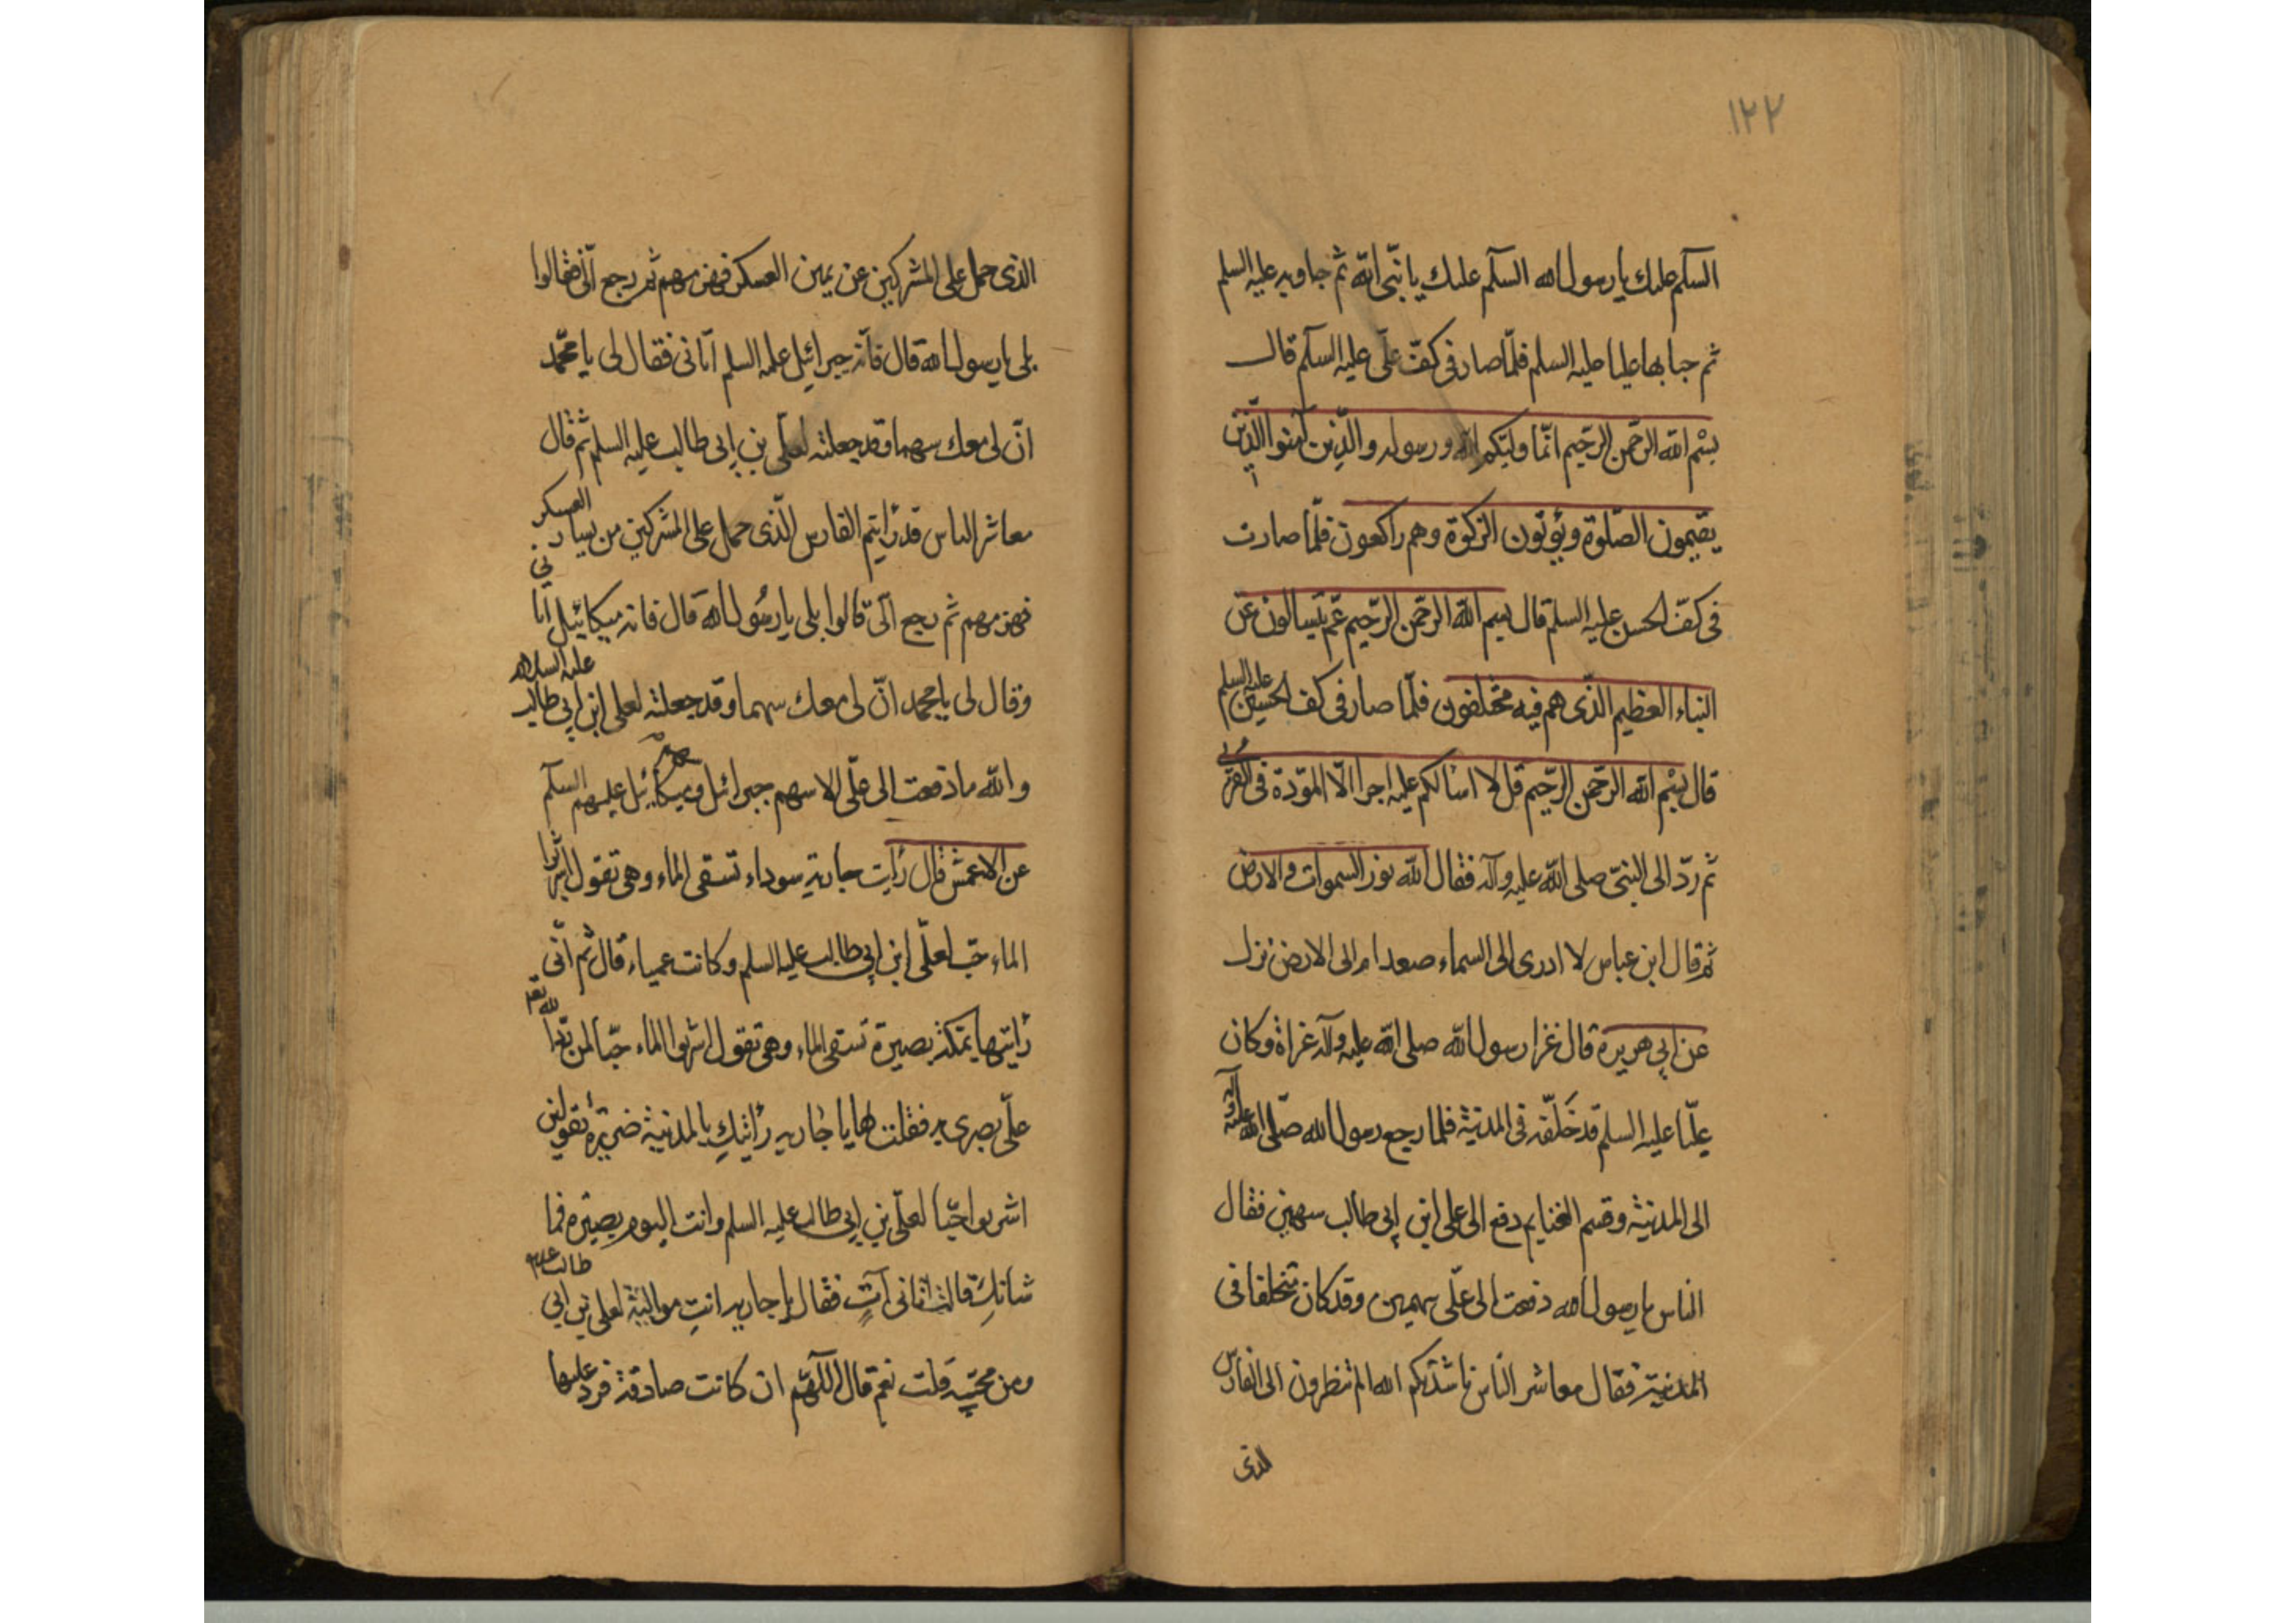 ١٢٢
السلم عليك يا رسول الله السلم عليك يا نبي الله ثم حباوبه عليه السلم
ثم حبا بها عليا عليه السلم فلما صار في كف علي عليه السلم قال
بسم الله الرحمن الرحيم انما وليكم الله ورسوله والذين آمنوا الذين
يقيمون الصلوة ويؤتون الزكوة وهم راكعون فلما صارت
في كف الحسن عليه السلم قال بسم الله الرحمن الرحيم عم يتسالون عن
النباء العظيم الذى هم فيه مختلفون فلما صار في كف الحسين عليه السلم
قال بسم الله الرحمن الرحيم قل لا اسالكم عليه اجرا الا المودة في القربى
ثم رد الى النبي صلى الله عليه وآله فقال الله نور السموات والارض
ثم قال ابن عباس لا ادرى الى السماء صعد ام الى الارض نزل
عن ابي هريرة قال غزا رسول الله صلى الله عليه وآله غزاة وكان
عليا عليه السلم قد خلفه في المدينة فلما رجع رسول الله صلى الله عليه وآله
الى المدينة وقسم الغنايم دفع الى علي ابن ابي طالب سهمين فقال
الناس يا رسول الله دفعت الى علي سهمين وقد كان متخلفا في
المدينة فقال معاشر الناس ناشدتكم الله الم تنظرون الى الفارس
الذى
الذى حمل على المشركين عن يمين العسكر فهزمهم ثم رجع الي فقالوا
بلى يا رسول الله قال فانه جبرائيل عليه السلم اتانى فقال لى يا محمد
ان لى معك سهما وقد جعلته لعلي بن ابى طالب عليه السلم ثم قال
معاشر الناس قد رايتم الفارس الذى حمل على المشركين من يسار العسكر
فهزمهم ثم رجع الي قالوا بلى يا رسول الله قال فانه ميكائيل اتانى
وقال لى يا محمد ان لى معك سهما وقد جعلته لعلى ابن ابي طالب عليه السلام
والله ما دفعت الى علي الا سهم جبرائل وميكائيل عليهم السلم
عن الاعمش قال رايت جارية سوداء تسقى الماء وهي تقول اشربوا
الماء حبا لعلي ابن ابي طالب عليه السلم وكانت عمياء قال ثم انى
رايتها بمكة بصيرة تسقى الماء وهي تقول اشربوا الماء حبا لمن رد الله تعه
علي بصرى به فقلت لها يا جاريه رائيتك بالمدينة ضريرة تقولين
اشربوا حبا لعلي بن ابي طالب عليه السلم وانت اليوم بصيره فما
شانك قالت اتانى آت فقال يا جاريه انت موالية لعلي بن ابي طالب ع
ومن محبيه قلت نعم قال اللهم ان كانت صادقة فرد عليها